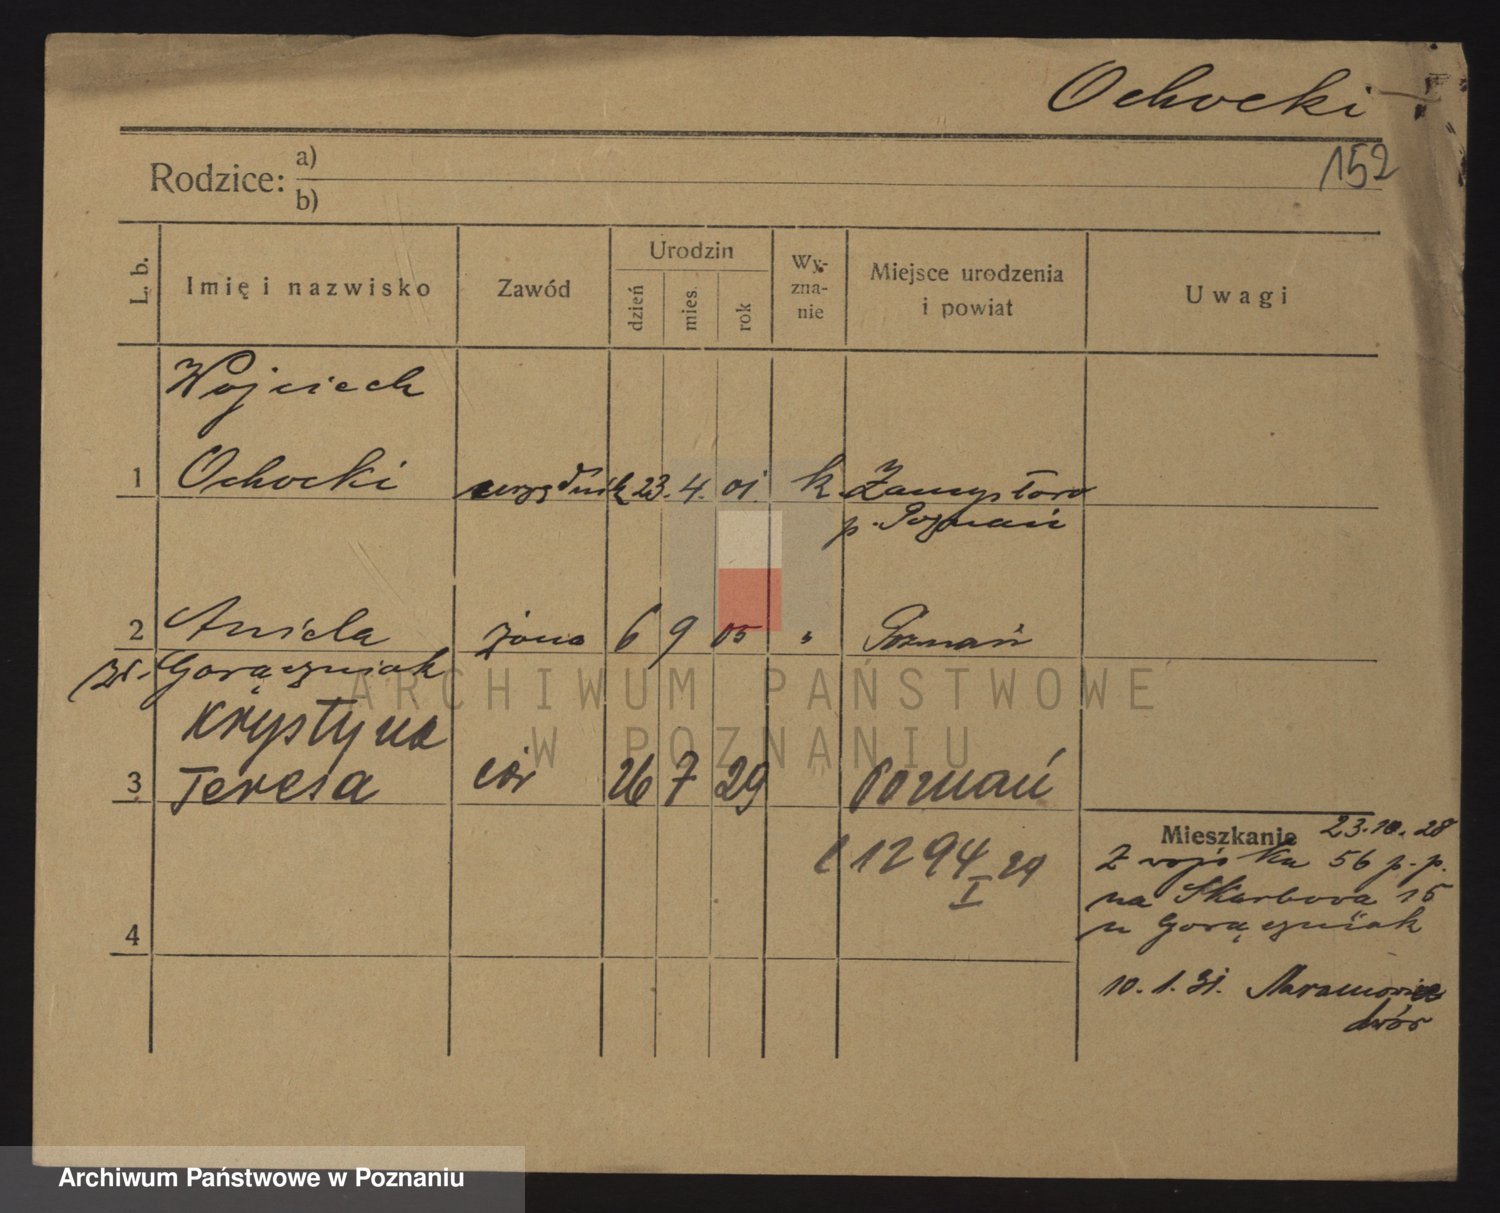 Ochocki
152
Rodzice: a)
b)
L. b.
Imię i nazwisko
Zawód
Urodzin
dzień
mies.
rok
Wy-
zna-
nie
Miejsce urodzenia
i powiat
Uwagi
Wojciech
1 Ochocki urzędnik 23. 4. 01. k.
p. Poznań
2 Aniela żona 6 9 05 " Poznań
Gorączniak
Krystyna
3 Teresa cór 26 7 29 Poznań
1294 29
I
4
Mieszkanie 23.10.28
Z wojska 56 p.p.
na Skarbowa 15
u Gorączniak
10.1.31.
dwór
ARCHIWUM PAŃSTWOWE
W POZNANIU
Archiwum Państwowe w Poznaniu